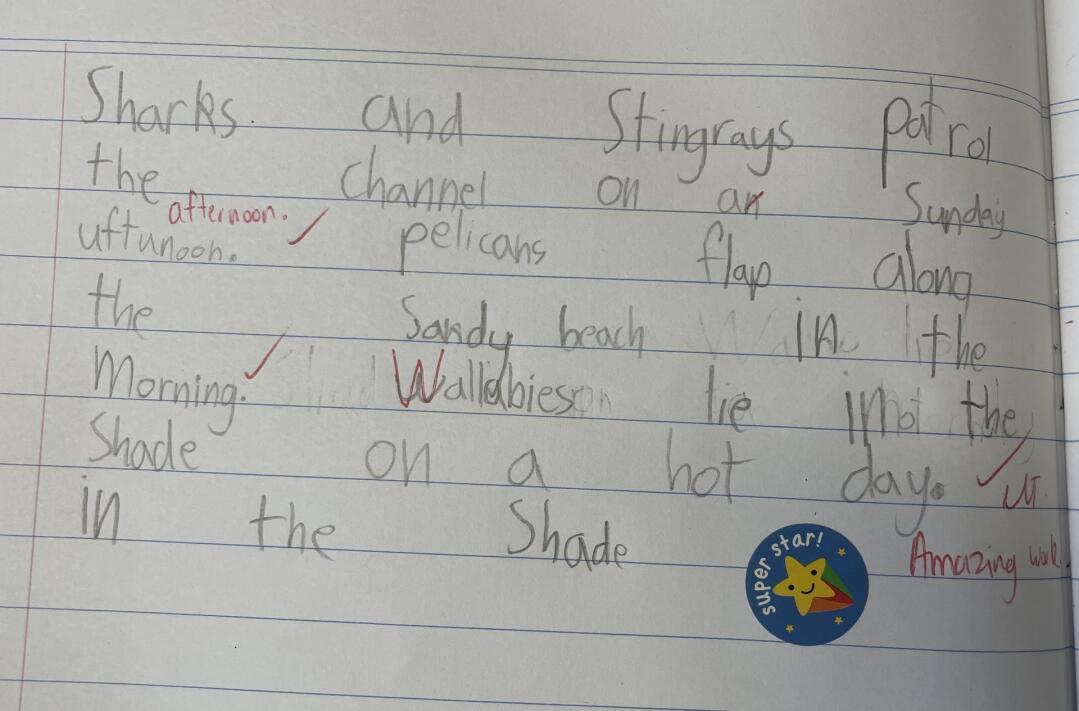 Sharks and Stingrays patrol
the channel on an Sunday
afternoon.
uftunoon. pelicans flap along
the Sandy beach in the
Morning. Wallabies lie in the
Shade on a hot day.
in the Shade
super star!
Amazing work.